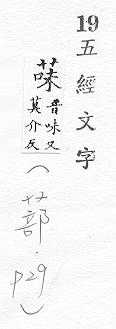 19五經文字
菋
音味又
莫介反
(艹部.P29)